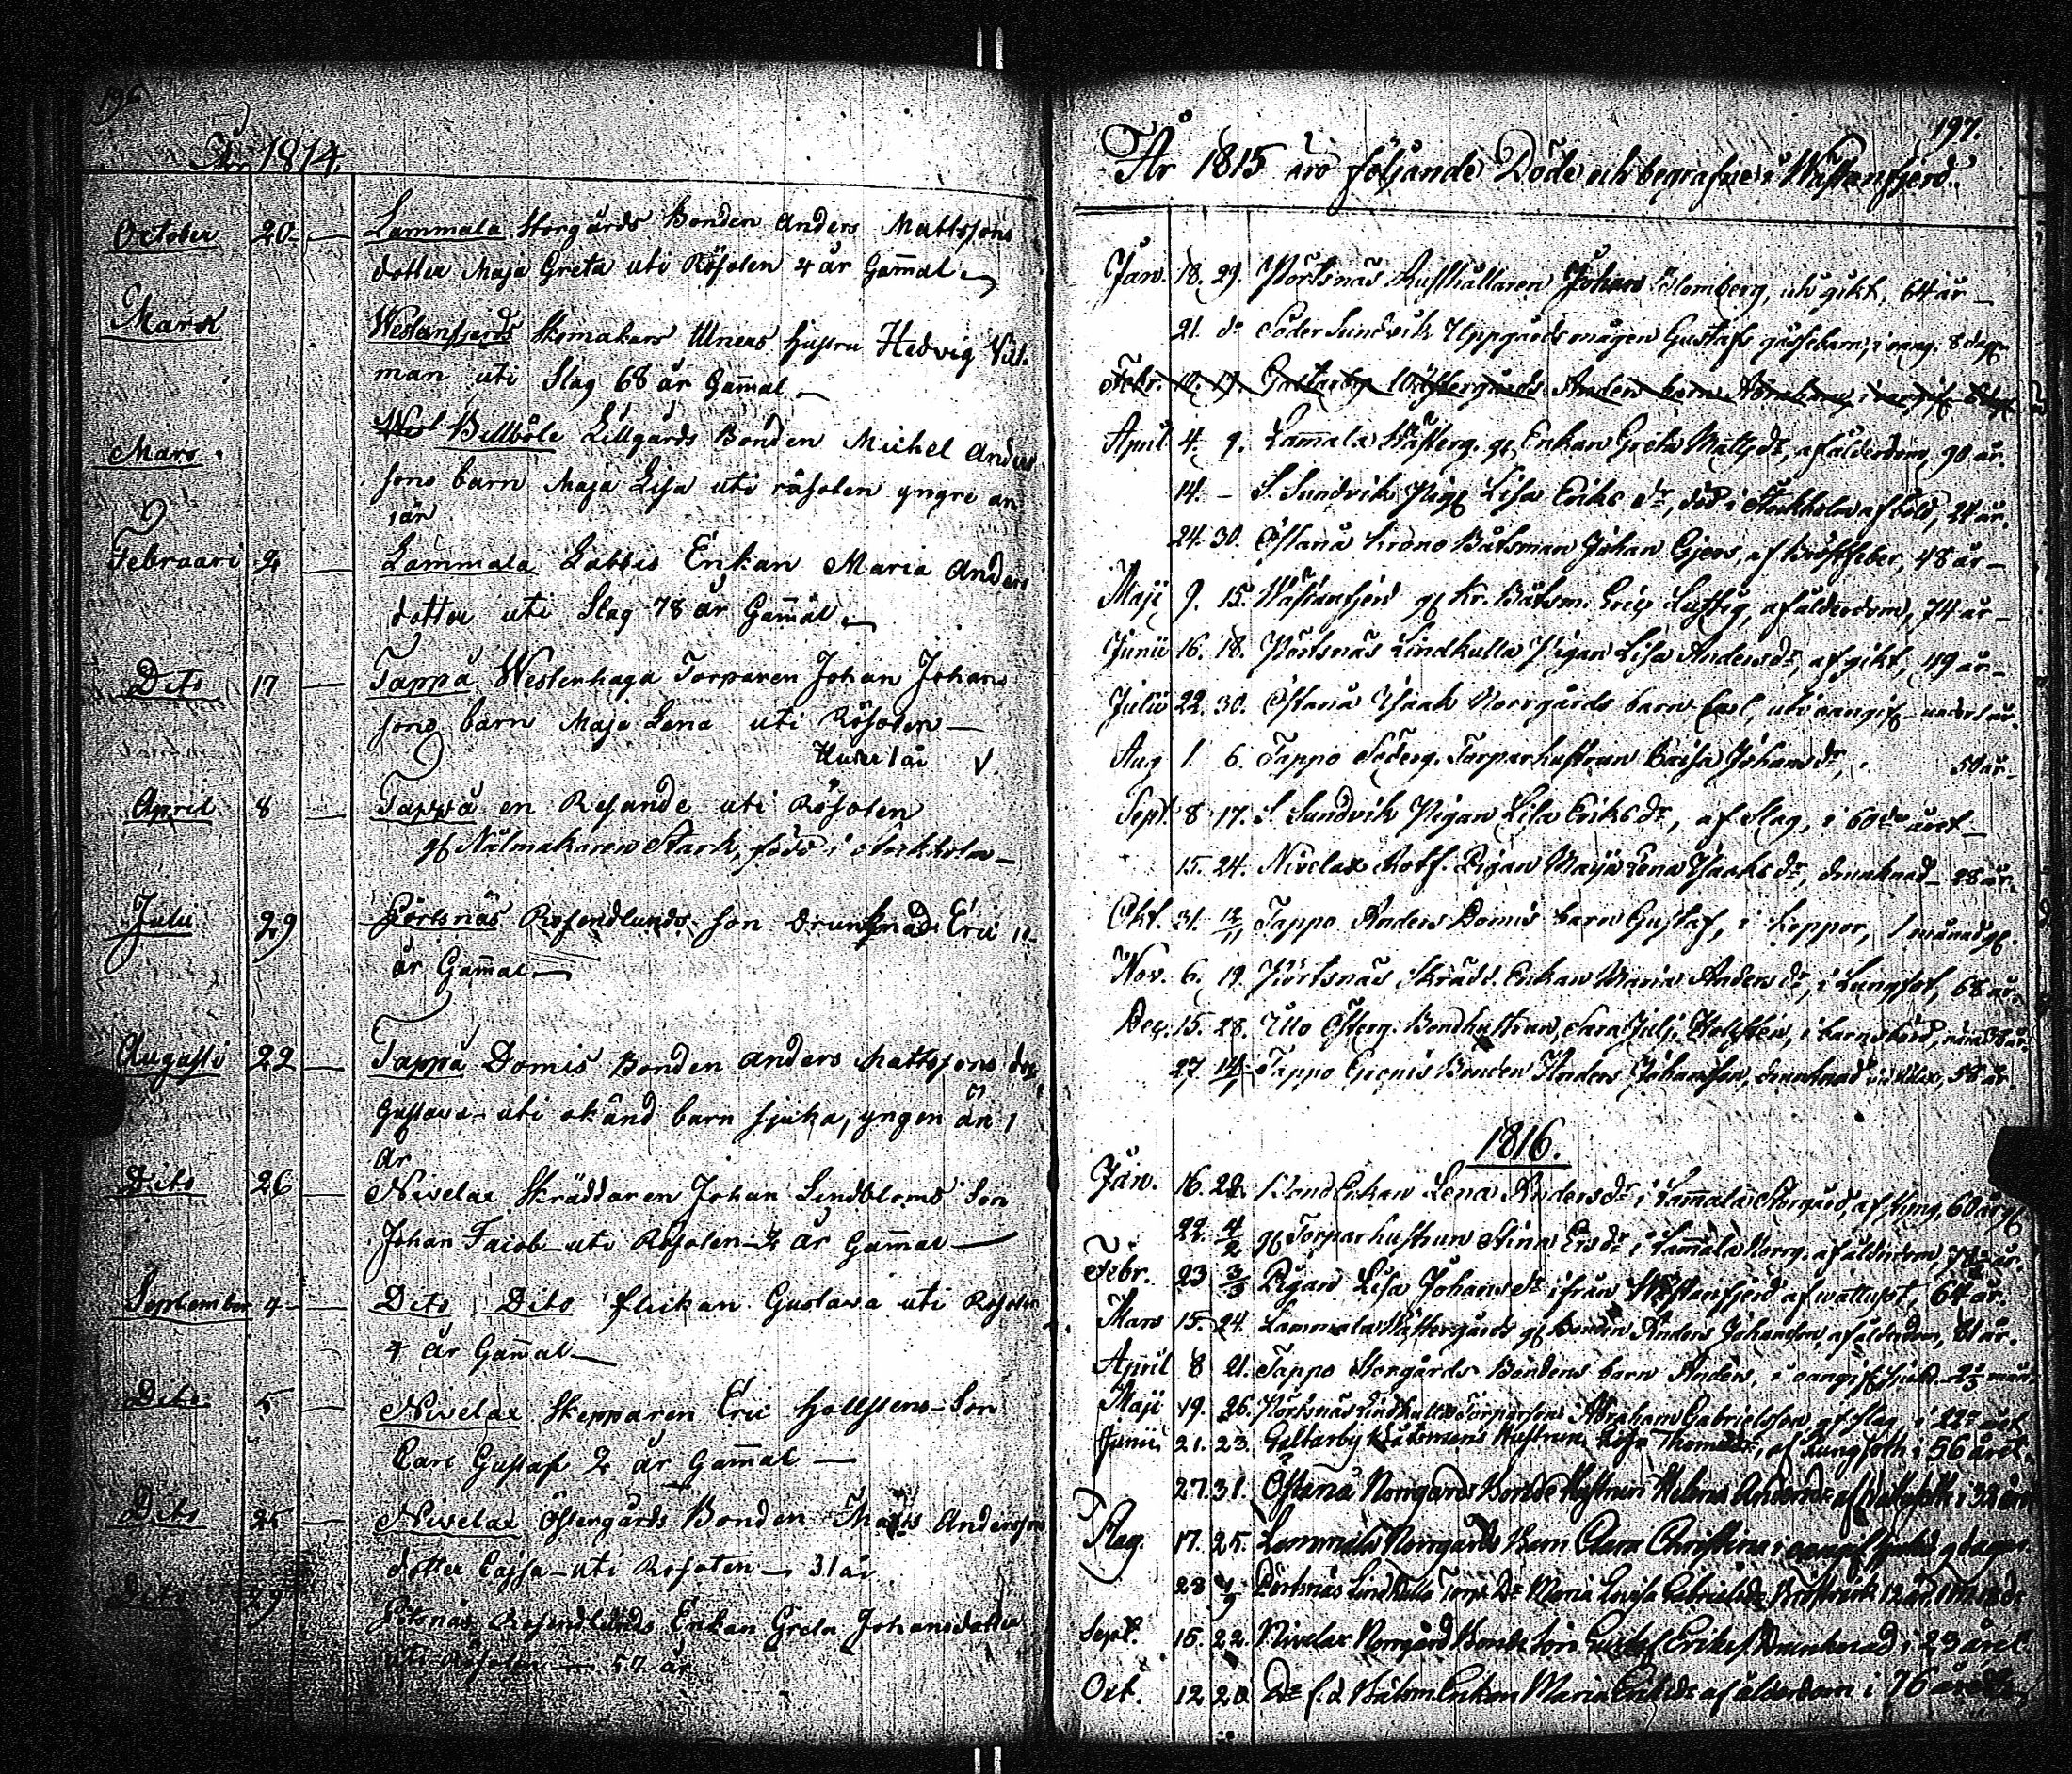 196
År 1814.
October 20 — Lammala Storgårds Bonden Anders Mattssons
dotter Maja Greta uti Rösolen 4 år Gam̄al —
Mars Westanfjerds Skomakars Uners hustru Hedvig
man uti Slag 68 år Gam̄al —
Mars Billböle Lillgårds Bonden Michel Anders
sons barn Maja Lisa uti råsolen yngre än
1 år
Februari 2 — Lammala Enkan Maria Anders
dotter uti Slag 78 år Gam̄al —
Dito 17 — Tappå Westerhaga Torparen Johan Johans
sons barn Maja Lena uti Rösolen —
Under 1 år
April 8 — Tappå en Resande uti Rösolen
gf Nålmakaren Stark, född i Stockholm —
Julii 29 Pörtsnäs Rosendlunds son drunknade Eric 11
år Gam̄al —
Augusti 22 — Tappå Domis Bonden Anders Mattssons
Gustava uti okänd barn sjuka, yngen än 1
år
Dito 26 — Nivelax Skräddaren Johan Lindbloms Son
Johan Jacob uti Rösolen 2 år Gam̄al —
September 4 — Dito Dito flickan Gustava uti Rösolen
4 år Gam̄al —
Dito 5 — Nivelax Skepparen Eric Hollstens Son
Carl Gustaf 2 år Gam̄al —
Dito 25 — Nivelax Östergårds Bonden Anderssons
dotter Cajsa uti Rosolen — 31 år
Dito 29 Rosendlunds Enkan Greta Johansdotter
uti Rösolen — 57 år
197.
År 1815 äro följande Döde och begrafne i Wästanfjerd.
Jan. 18. 29. Pörtsnäs Rusthållaren Johan Blomberg, gikt, 64 år —
21. do Söder Sundvik Uppgårds mågen Gustafs barn, 8 dagar
Febr. 10. 19. Galtarby Wästergårds Anders barn Abraham
April 4. 9. Lam̄ala Wästerg. gf Enkan Greta Matts dr, af ålderdom, 90 år.
14. — S. Sundvik Pig. Lisa Eriks dr, död i Stockholm af 24 år.
24. 30. Östanå Krono Båtsman Johan af Bröstfeber, 48 år —
Maji 9. 15. Wästanfjerd gf Kr. Båtsm. Eric Lustig, af ålderdom, 74 år —
Junii 16. 18. Pörtsnäs Lindkulla Pigan Lisa Anders dr, af gikt, 49 år —
Julii 22. 30. Östanå Isaak Norrgårds barn Carl, under 1 år.
Aug 1. 6. Tappo Söderg. Torparhustrun Caisa Johans dr, 50 år —
Sept. 8 17. S. Sundvik Pigan Lisa Eriks dr, af Slag, i 60de året —
15. 24. Nivelax Rotf. Pigan Maija Lena Isaaks dr, drunknad — 28 år.
Okt. 31. 12/11 Tappo Anders Domis barn Gustaf, i koppor, 1 månad gl.
Nov. 6. 19. Pörtsnäs Skrädd. Enkan Maria Anders dr, i Lungsot, 68 år.
Dec. 15. 28. Österg. Bondhustrun, Sara Holstén, i barnsbörd,
27 14/1 Tappo Bonden Anders Johansson, drunknad 58 år.
1816.
Jan. 16. 22. Bond Enkan Lena Anders dr i Lam̄ala Storgård, af 60 år gl
22. 4/2 gf Torparhustrun Stina Ers dr i Lam̄ala Norrg. af ålderdom,
Febr. 23 3/3 Pigan Lisa Johans dr ifrån Wästanfjerd af wattusot, 64 år.
Mars 15. 24. Lammala Wästergårds gf Bonden Anders Johansson, af ålderdom, 81 år.
April 8 21. Tappo Storgårds Bondens barn Anders,
Maji 19. 26. Pörtsnäs Lindkulla Torparson Abraham Gabrielsson, af slag, i 22 året
Junii 21. 23. Galtarby Båtsmans Hustrun Thomas dr, af Lungsoth i 56 året
27. 31. Östanå Norrgårds Bonde Hustrun Helena
Aug. 17. 25. Lammala Norrgårds Barn Clara Christina i 9 dagar
28 Pörtsnäs Lindkulla Torp. Dr Maria Lovisa Gabriels dr
Sept. 15. 22. Nivelax Norrgård Bonde Son Gustaf Erikss. Drunknad i 23 året
Oct. 12 20 Do f.d. Båtsm. Enkan Maria Eriks dr af ålderdom i 76 året